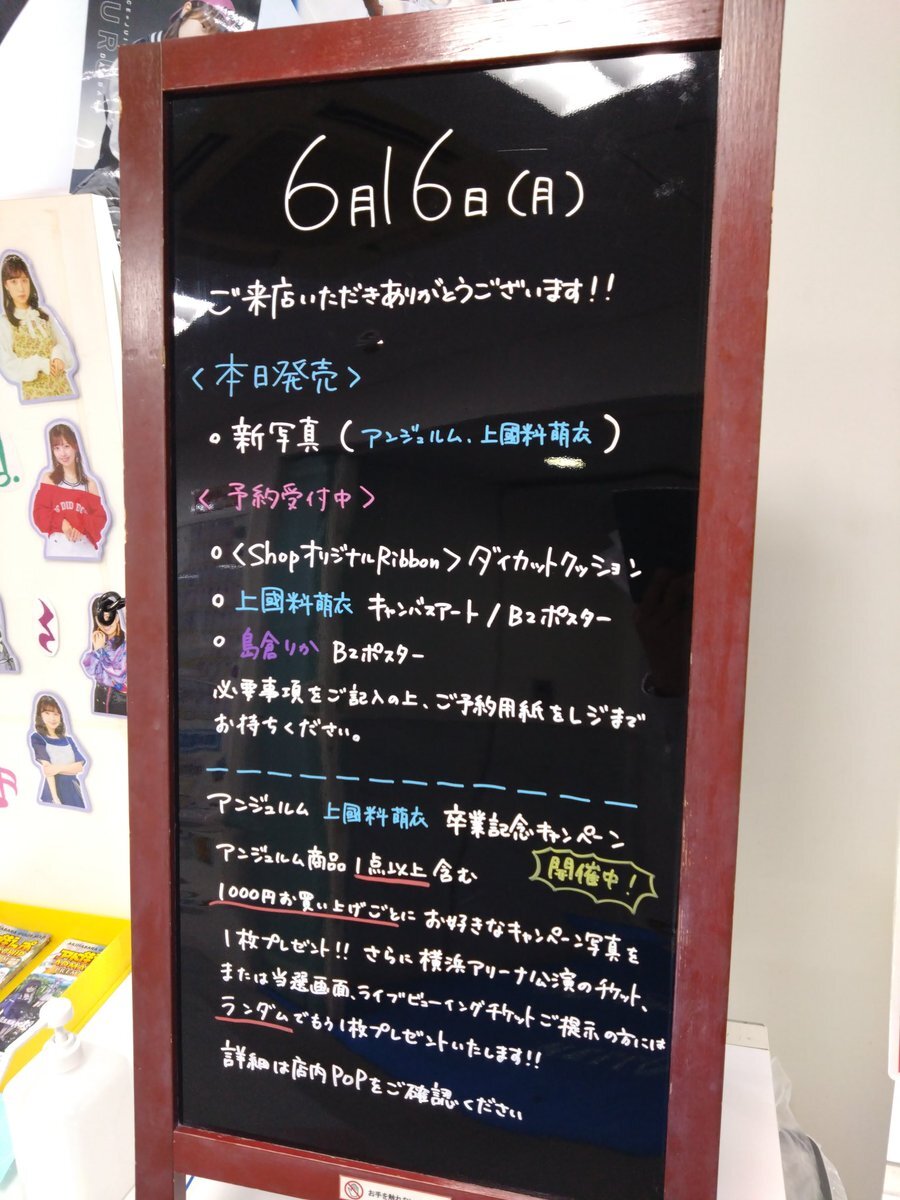 6月16日(月)
ご来店いただきありがとうございます!!
<本日発売>
○新写真(アンジュルム、上國料萌衣)
<予約受付中>
○<ShopオリジナルRibbon>ダイカットクッション
○上國料萌衣 キャンバスアート/B2ポスター
○島倉りか B2ポスター
必要事項をご記入の上、ご予約用紙をレジまで
お持ちください。
アンジュルム 上國料萌衣 卒業記念キャンペーン
開催中!
アンジュルム商品1点以上含む
1000円お買い上げごとに お好きなキャンペーン写真を
1枚プレゼント!! さらに横浜アリーナ公演のチケット、
または当選画面、ライブビューイングチケットご提示の方には
ランダムでもう1枚プレゼントいたします!!
詳細は店内POPをご確認ください